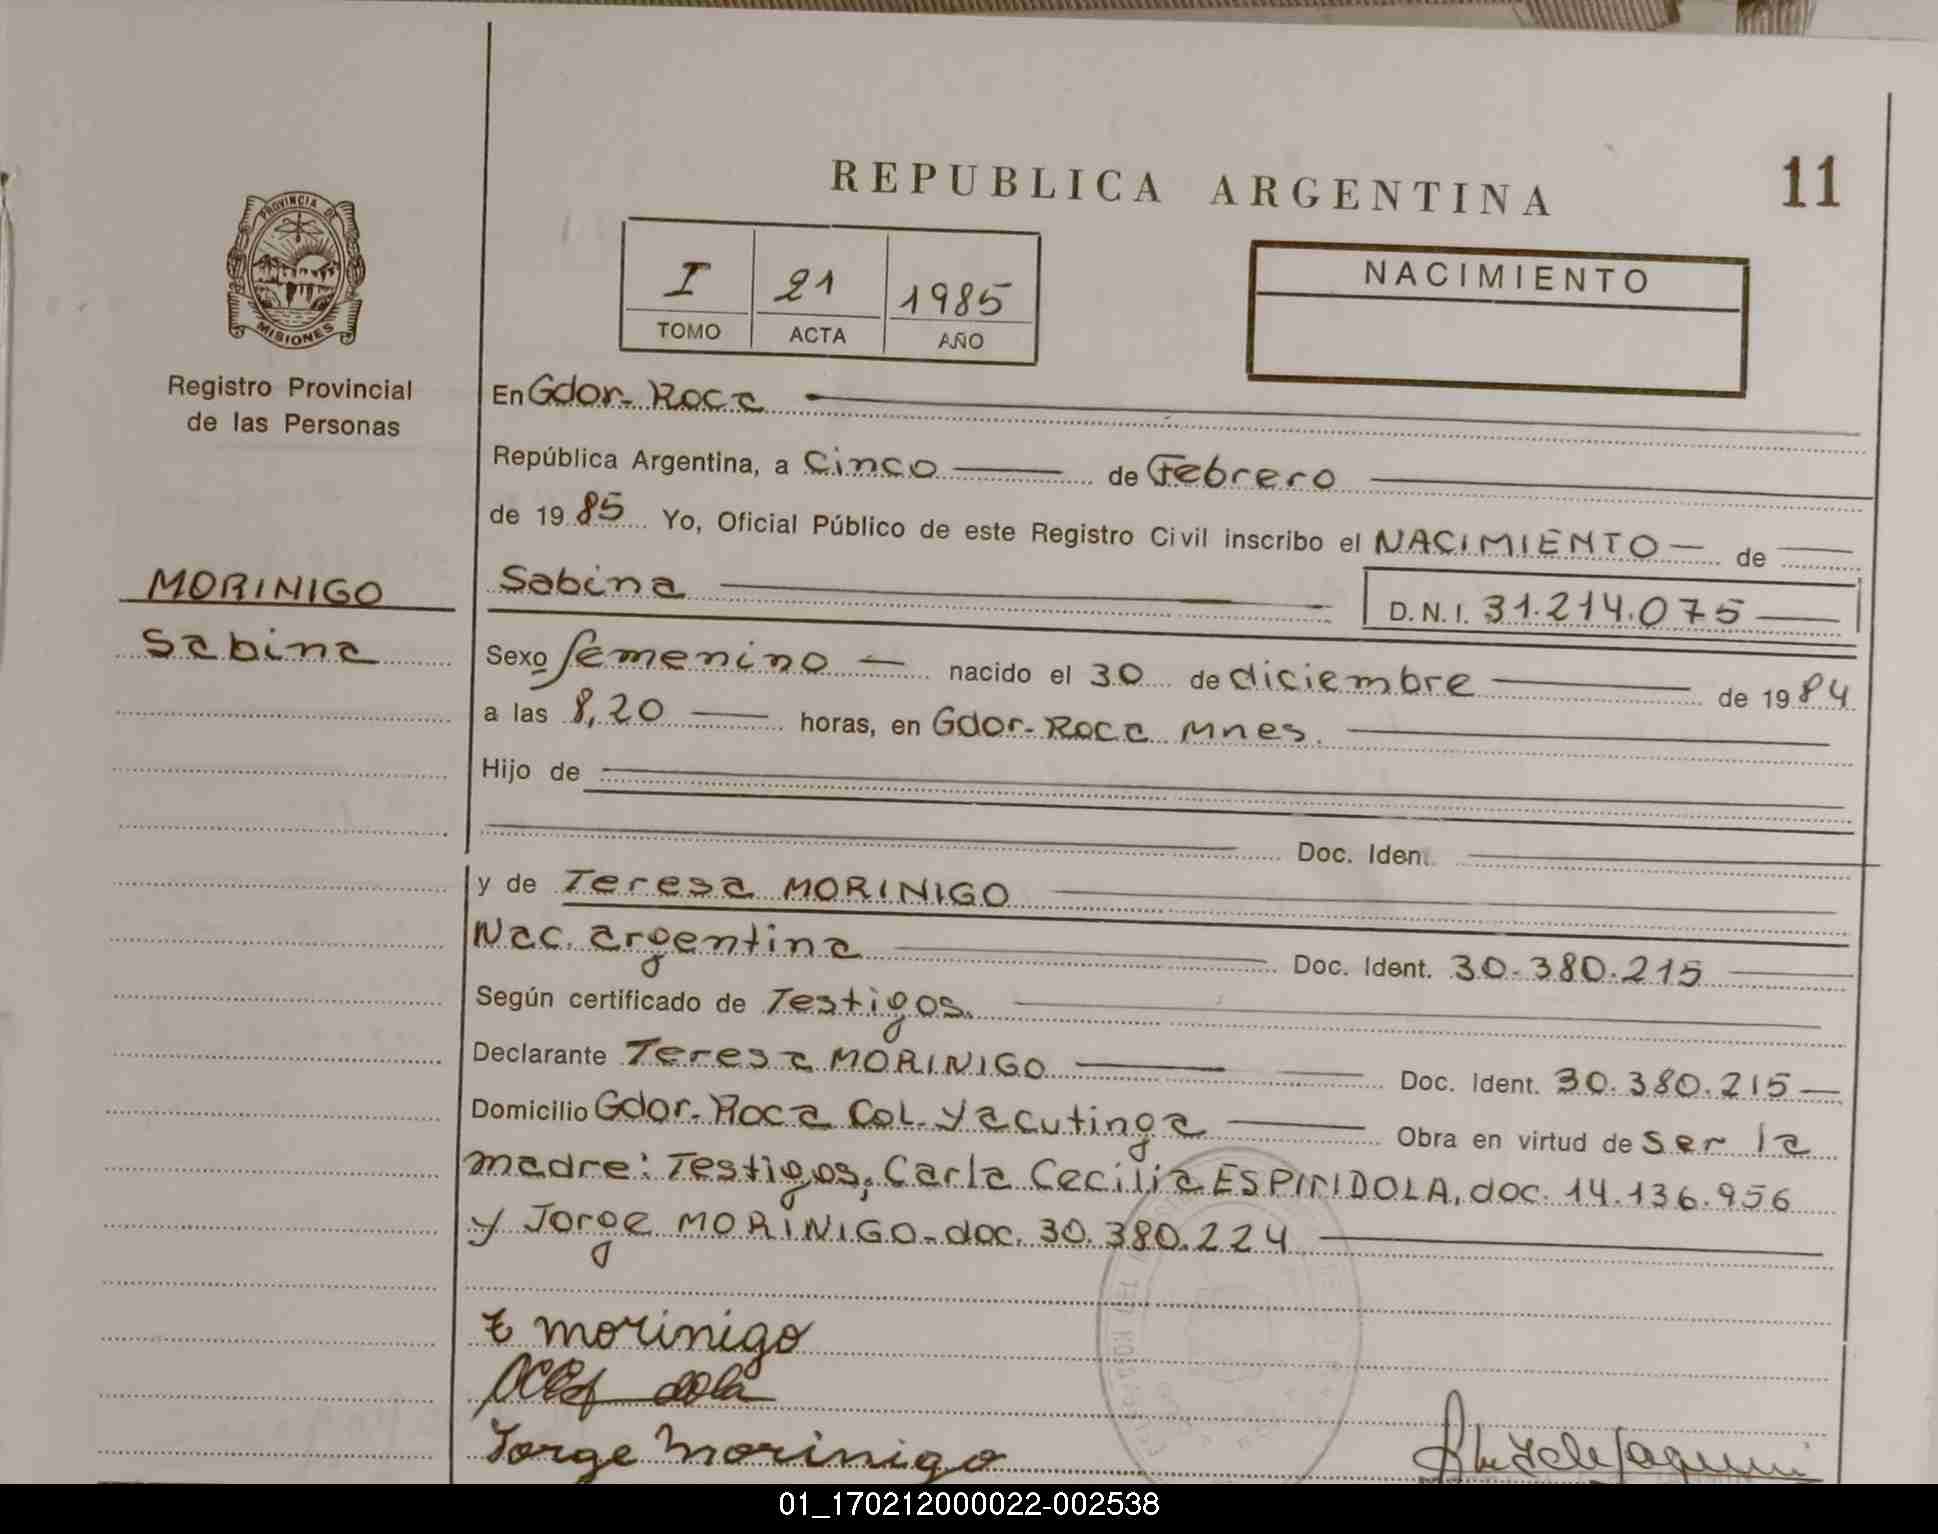 REPUBLICA ARGENTINA
11
PROVINCIA DE
MISIONES
Registro Provincial
de las Personas
I 21 1985
TOMO ACTA AÑO
NACIMIENTO
En Gdor. Roca
República Argentina, a Cinco de Febrero
de 1985 Yo, Oficial Público de este Registro Civil inscribo el NACIMIENTO de
MORINIGO
Sabina
Sabina D.N.I. 31.214.075
Sexo femenino nacido el 30 de diciembre de 1984
a las 8,20 horas, en Gdor. Roca Mnes.
Hijo de
Doc. Iden.
y de Teresa MORINIGO
Nac. argentina Doc. Ident. 30.380.215
Según certificado de Testigos.
Declarante Teresa MORINIGO Doc. Ident. 30.380.215
Domicilio Gdor. Roca Col. Yacutinga Obra en virtud de ser la
madre: Testigos, Carla Cecilia ESPIRIDOLA, doc. 14.136.956
y Jorge MORINIGO. doc. 30.380.224
t morinigo
Jorge Morinigo
01_170212000022-002538